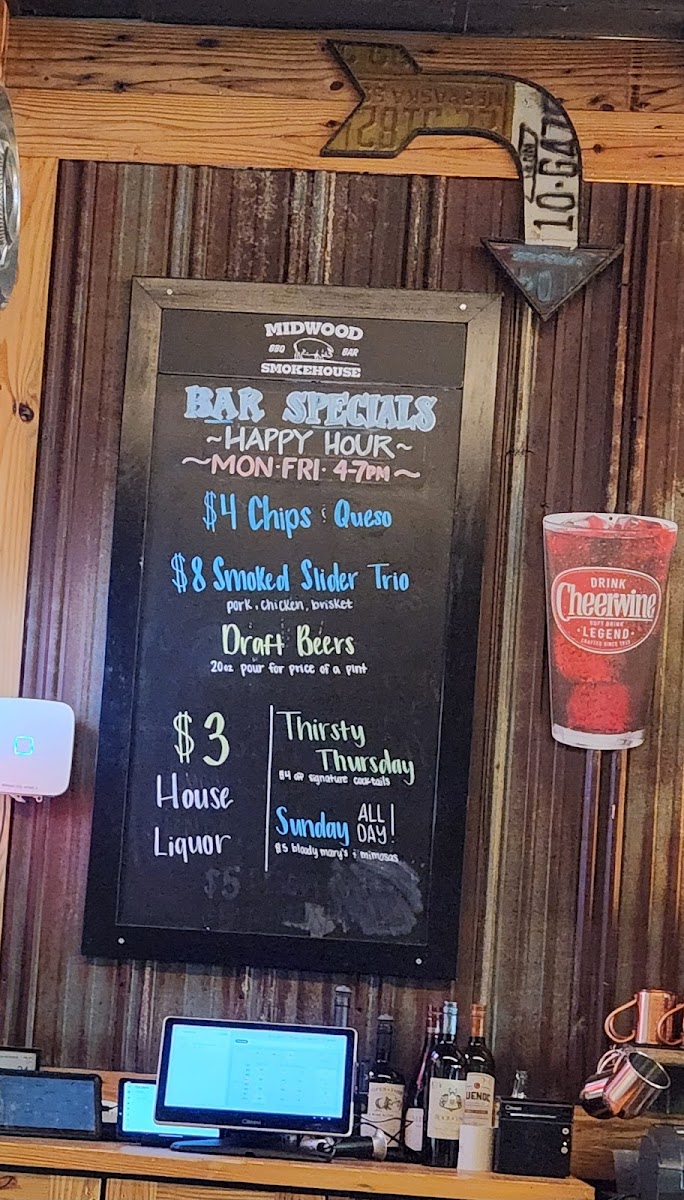 NEBRASKA
10·G47
MIDWOOD
BBQ BAR
SMOKEHOUSE
BAR SPECIALS
~HAPPY HOUR~
~MON·FRI· 4-7PM~
$4 Chips & Queso
$8 Smoked Slider Trio
pork, chicken, brisket
Draft Beers
20oz pour for price of a pint
$3
House
Liquor
Thirsty
Thursday
$4 off signature cocktails
Sunday ALL DAY!
$5 bloody mary's & mimosas
$5
DRINK
Cheerwine
SOFT DRINK
·LEGEND·
CRAFTED SINCE 1917